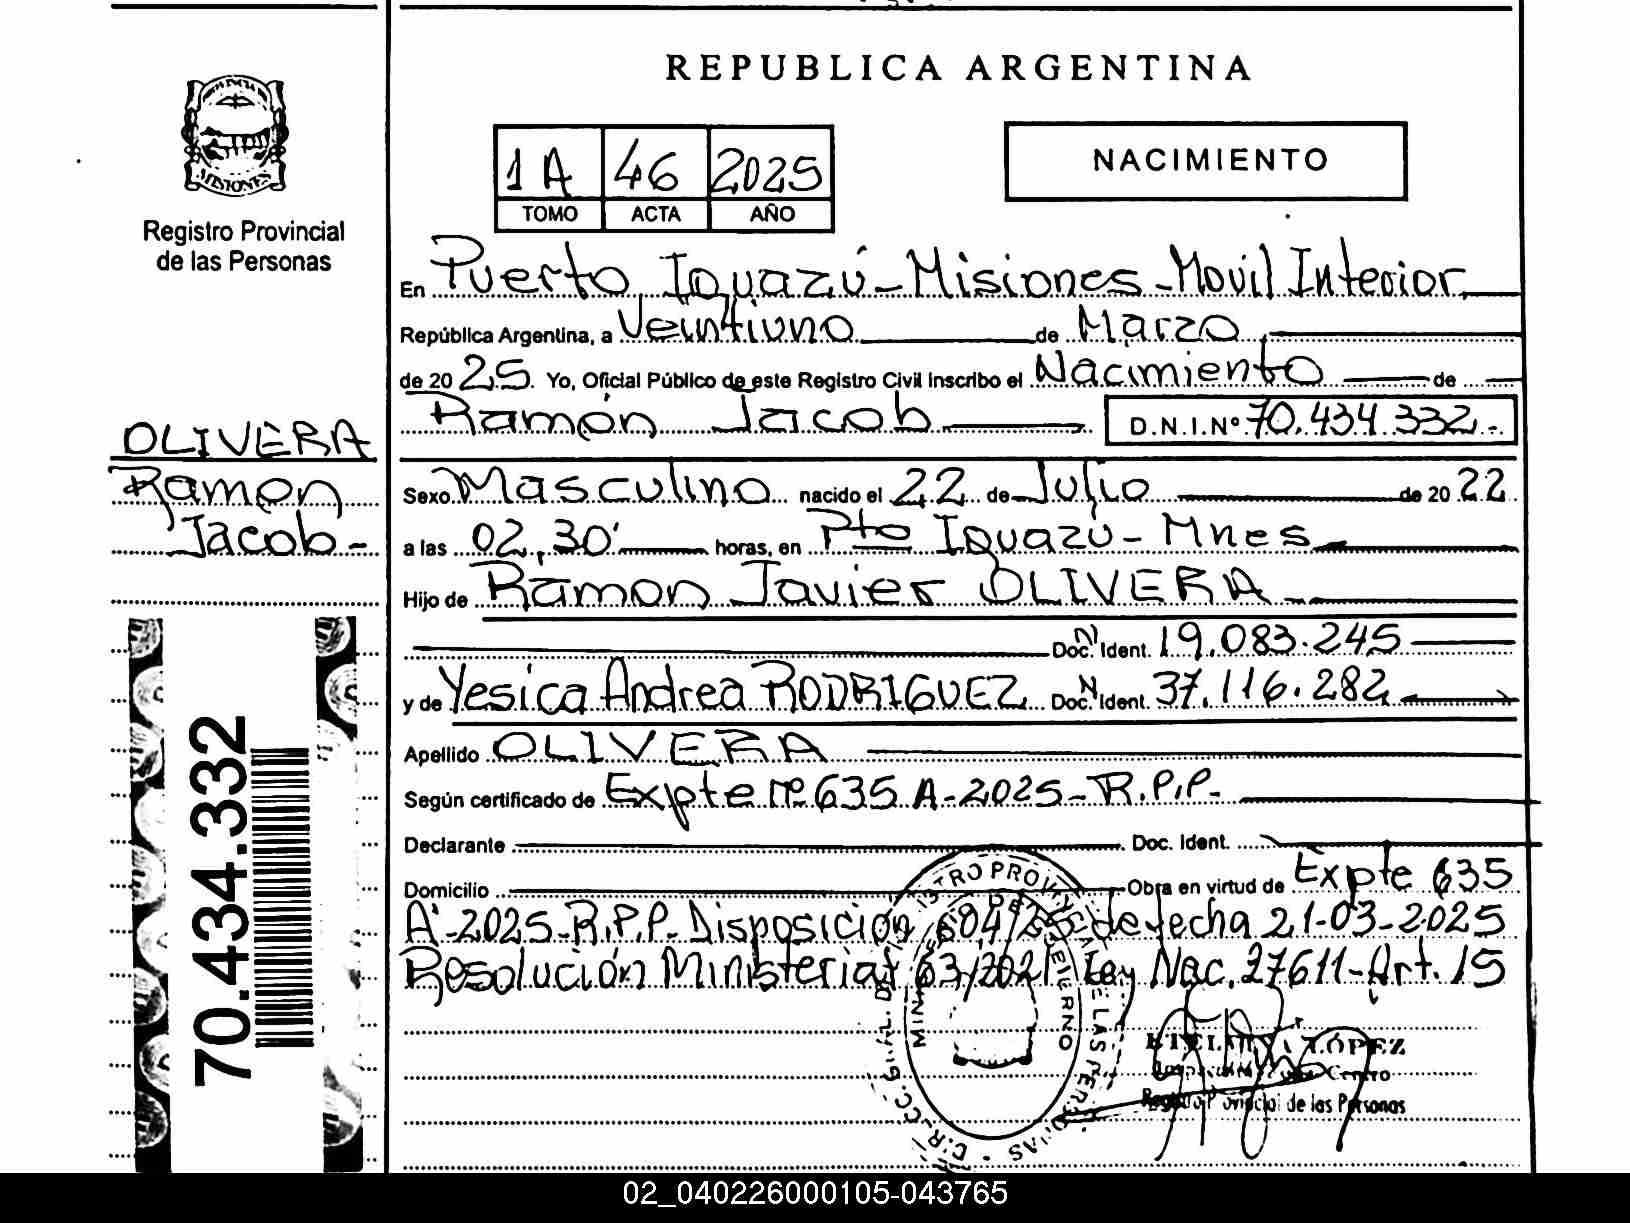 REPUBLICA ARGENTINA
MISIONES
Registro Provincial
de las Personas
1A 46 2025
TOMO ACTA AÑO
NACIMIENTO
En Puerto Iguazú - Misiones - Movil Interior
República Argentina, a Veintiuno de Marzo
de 2025. Yo, Oficial Público de este Registro Civil Inscribo el Nacimiento de
Ramón Jacob D.N.I.Nº 70.434.332.-
OLIVERA
Ramón
Jacob-
Sexo Masculino nacido el 22 de Julio de 2022
a las 02,30' horas, en Pto Iguazú - Mnes
Hijo de Ramon Javier OLIVERA -
Doc. N Ident. 19.083.245
y de Yesica Andrea RODRIGUEZ Doc. N Ident. 37.116.282
Apellido OLIVERA
Según certificado de Expte nº 635 A-2025-R.P.P-
Declarante Doc. Ident.
Domicilio Obra en virtud de Expte 635
A-2025-R.P.P- Disposición 604/25 de fecha 21-03-2025
Resolución Ministerial 63/2021 Ley Nac. 27611-Art. 15
LÓPEZ
Centro
Registro Provincial de las Personas
70.434.332
02_040226000105-043765